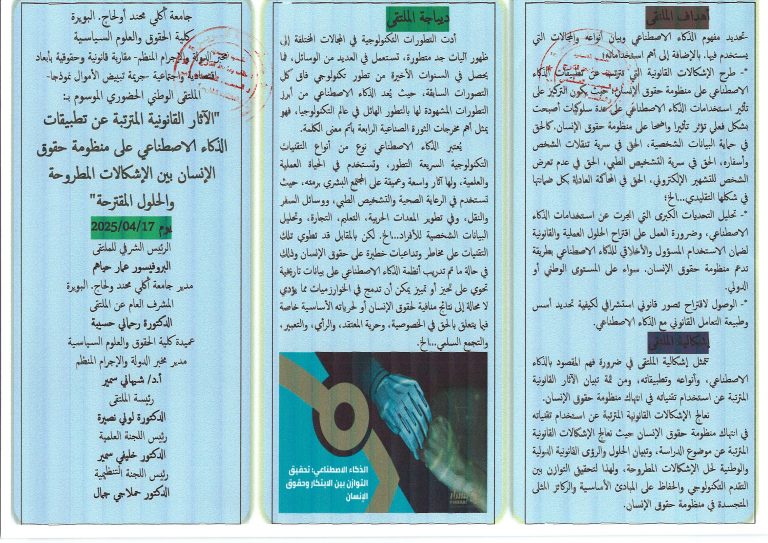 أهداف الملتقى
تحديد مفهوم الذكاء الاصطناعي وبيان أنواعه والمجالات التي
يستخدم فيها. بالإضافة إلى أهم استخداماته.
-* طرح الإشكالات القانونية التي تترتب عن تطبيقات الذكاء
الاصطناعي على منظومة حقوق الإنسان. حيث يكون التركيز على
تأثير استخدامات الذكاء الاصطناعي على عدة سلوكيات أصبحت
بشكل فعلي تؤثر تأثيرا واضحا على منظومة حقوق الإنسان. كالحق
في حماية البيانات الشخصية، الحق في سرية تنقلات الشخص
وأسفاره، الحق في سرية التشخيص الطبي، الحق في عدم تعرض
الشخص للتشهير الإلكتروني، الحق في المحاكمة العادلة بكل ضماناتها
في شكلها التقليدي...الخ؛
-* تحليل التحديات الكبرى التي انجرت عن استخدامات الذكاء
الاصطناعي، وضرورة العمل على اقتراح الحلول العملية والقانونية
لضمان الاستخدام المسؤول والأخلاقي للذكاء الاصطناعي بطريقة
تدعم منظومة حقوق الإنسان. سواء على المستوى الوطني أو
الدولي.
-* الوصول لاقتراح تصور قانوني استشرافي لكيفية تحديد أسس
وطبيعة التعامل القانوني مع الذكاء الاصطناعي.
إشكالية الملتقى
تتمثل إشكالية الملتقى في ضرورة فهم المقصود بالذكاء
الاصطناعي، وأنواعه وتطبيقاته، ومن ثمة تبيان الآثار القانونية
المترتبة عن استخدام تقنياته في انتهاك منظومة حقوق الإنسان.
نعالج الإشكالات القانونية المترتبة عن استخدام تقنياته
في انتهاك منظومة حقوق الإنسان حيث نعالج الإشكالات القانونية
المترتبة عن موضوع الدراسة، وتبيان الحلول والرؤى القانونية الدولية
والوطنية لحل الإشكالات المطروحة، ولهذا لتحقيق التوازن بين
التقدم التكنولوجي والحفاظ على المبادئ الأساسية والركائز المثلى
المتجسدة في منظومة حقوق الإنسان.
ديباجة الملتقى
أدت التطورات التكنولوجية في المجالات المختلفة إلى
ظهور آليات جد متطورة، تستعمل في العديد من الوسائل، فما
يحصل في السنوات الأخيرة من تطور تكنولوجي فاق كل
التصورات السابقة، حيث يُعد الذكاء الاصطناعي من أبرز
التطورات المشهودة لها بالتطور الهائل في عالم التكنولوجيا، فهو
يمثل أهم مخرجات الثورة الصناعية الرابعة بأتم معنى الكلمة.
يعتبر الذكاء الاصطناعي نوع من أنواع التقنيات
التكنولوجية السريعة التطور، وتستخدم في الحياة العملية
والعلمية، ولها آثار واسعة وعميقة على المجتمع البشري برمته، حيث
تستخدم في الرعاية الصحية والتشخيص الطبي، ووسائل السفر
والنقل، وفي تطوير المعدات الحربية، التعليم، التجارة، وتحليل
البيانات الشخصية للأفراد...الخ. لكن بالمقابل قد تطوي تلك
التقنيات على مخاطر وتداعيات خطيرة على حقوق الإنسان وذلك
في حالة ما تم تدريب أنظمة الذكاء الاصطناعي على بيانات تاريخية
تحوي على تحيز أو تمييز يمكن أن تدمج في الخوارزميات مما يؤدي
لا محالة إلى نتائج منافية لحقوق الإنسان أو لحرياته الأساسية خاصة
فيما يتعلق بالحق في الخصوصية، وحرية المعتقد، والرأي، والتعبير،
والتجمع السلمي...الخ.
الذكاء الاصطناعي: تحقيق
التوازن بين الابتكار وحقوق
الإنسان
جامعة أكلي محند أولحاج. البويرة
كلية الحقوق والعلوم السياسية
مخبر الدولة والإجرام المنظم- مقاربة قانونية وحقوقية بأبعاد
اقتصادية واجتماعية -جريمة تبييض الأموال نموذجا-
الملتقى الوطني الحضوري الموسوم بـ:
"الآثار القانونية المترتبة عن تطبيقات
الذكاء الاصطناعي على منظومة حقوق
الإنسان بين الإشكالات المطروحة
والحلول المقترحة"
يوم 2025/04/17
الرئيس الشرفي للملتقى
البروفيسور عمار حياهم
مدير جامعة أكلي محند أولحاج. البويرة
المشرف العام عن الملتقى
الدكتورة رحماني حسيبة
عميدة كلية الحقوق والعلوم السياسية
مدير مخبر الدولة والإجرام المنظم
أ.د/ شيهاني سمير
رئيسة الملتقى
الدكتورة لوني نصيرة
رئيس اللجنة العلمية
الدكتور خليفي سمير
رئيس اللجنة التنظيمية
الدكتور حملاجي جمال